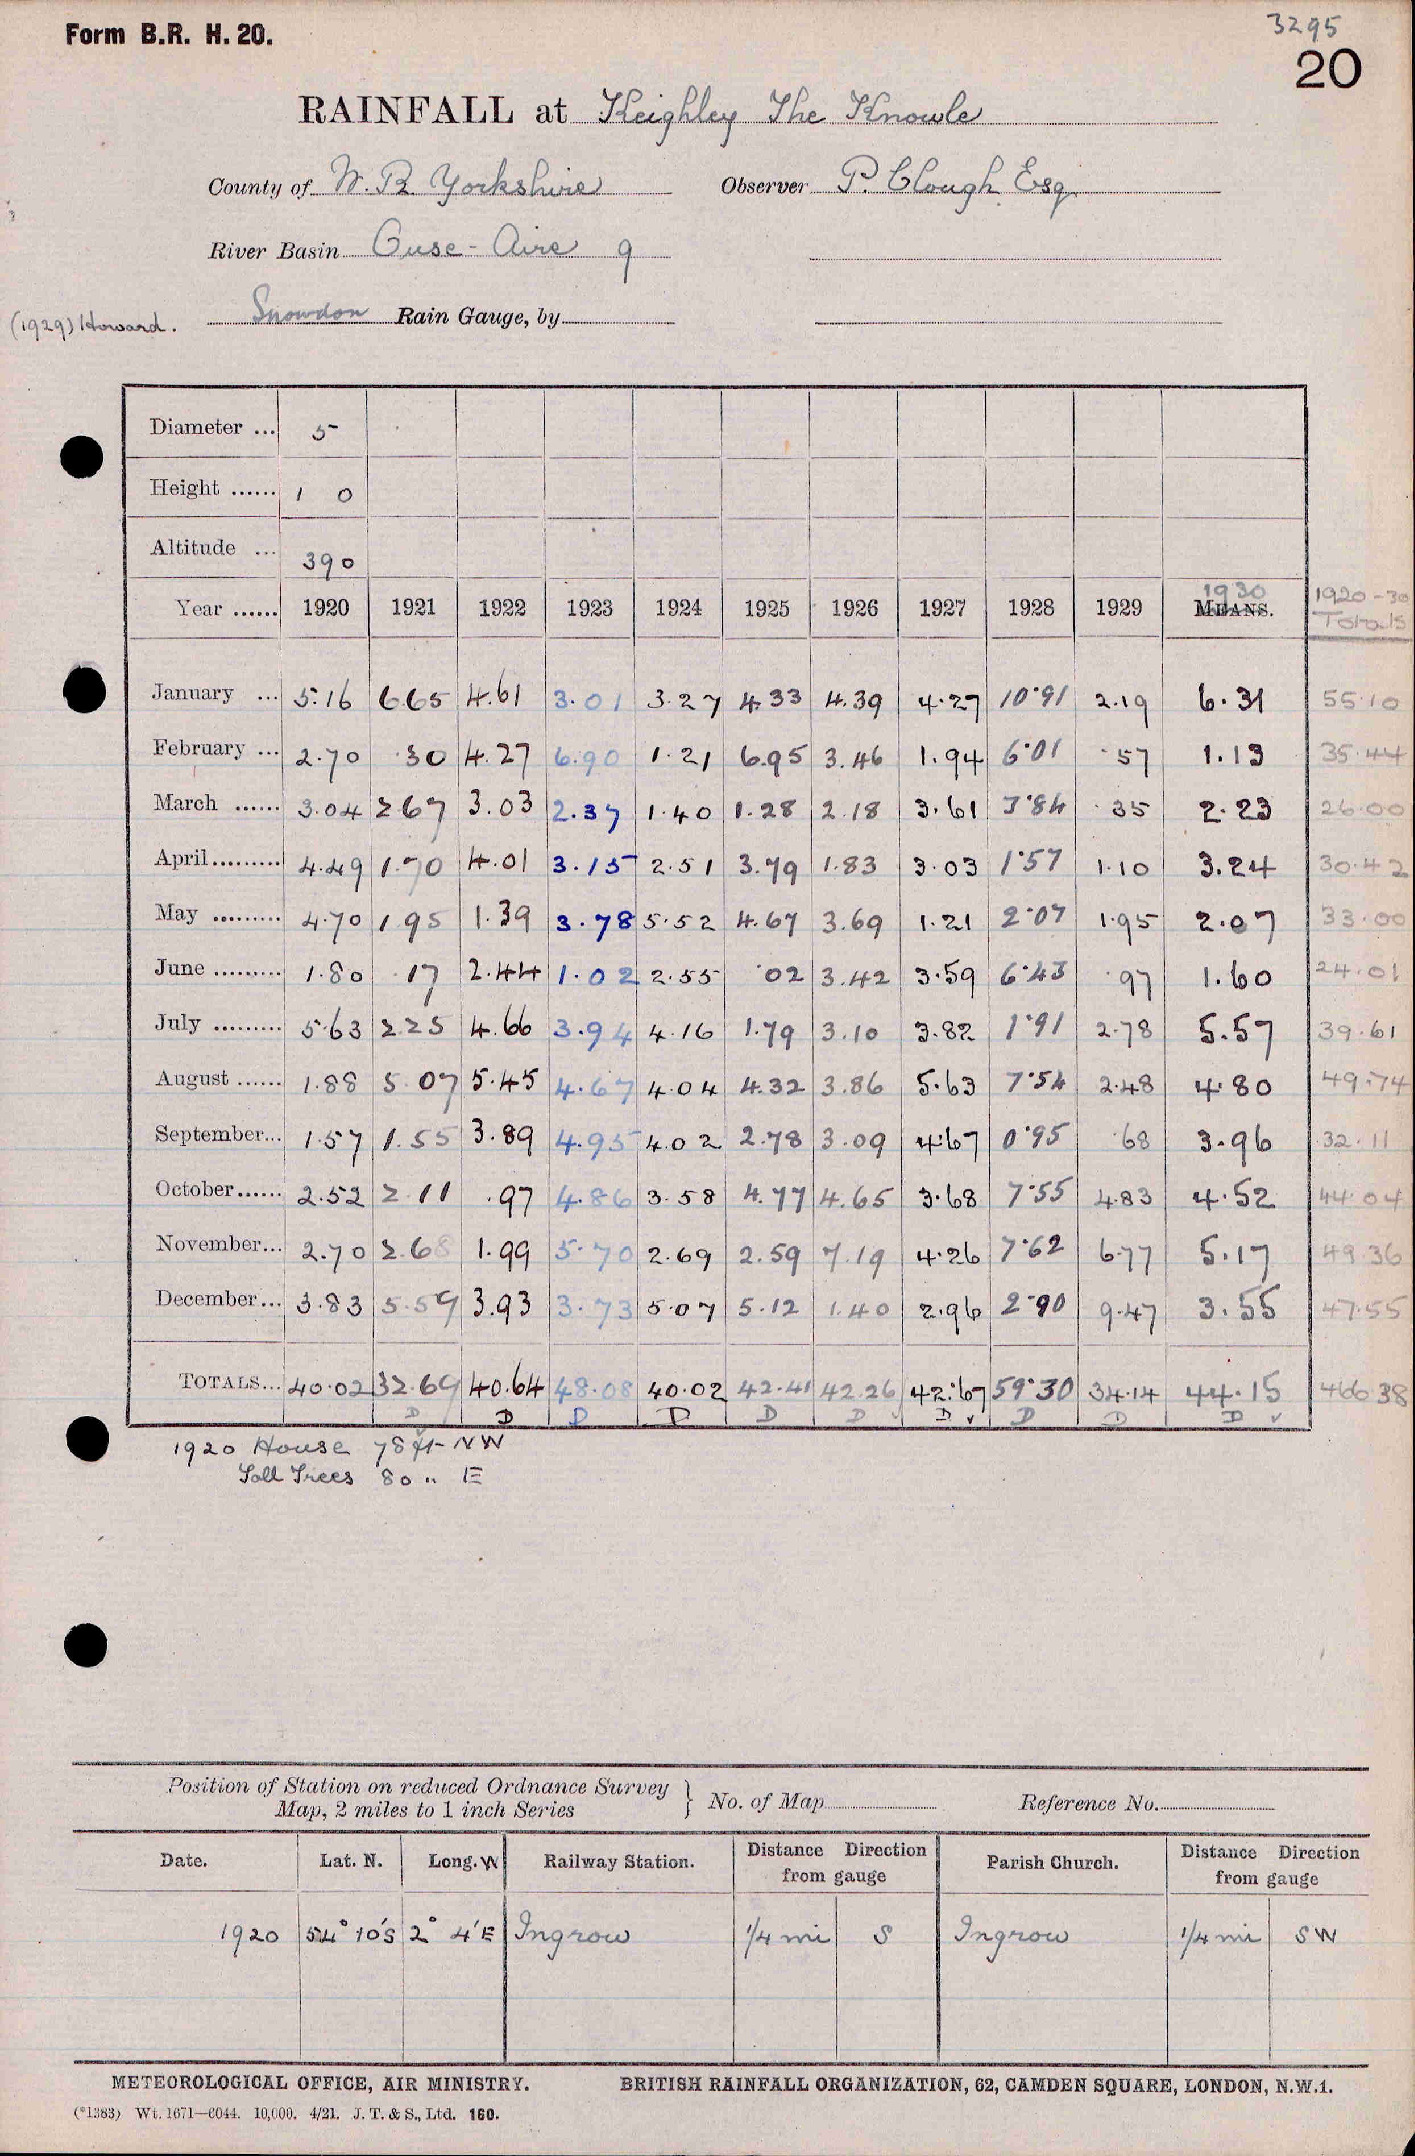 Form B.R. H. 20.
3295
20
RAINFALL at Keighley The Knowle
County of W. R. Yorkshire Observer P. Clough Esq.
River Basin Ouse - Aire 9
(1929) Howard. Snowdon Rain Gauge, by
Diameter ... 5
Height ...... 1 0
Altitude ... 390
Year ...... 1920 1921 1922 1923 1924 1925 1926 1927 1928 1929 MEANS. 1930 1920-30 Totals
January ... 5.16 6.65 4.61 3.01 3.27 4.33 4.39 4.27 10.91 2.19 6.31 55.10
February ... 2.70 .30 4.27 6.90 1.21 6.95 3.46 1.94 6.01 .57 1.13 35.44
March ...... 3.04 2.67 3.03 2.37 1.40 1.28 2.18 3.61 3.84 .35 2.23 26.00
April ......... 4.49 1.70 4.01 3.15 2.51 3.79 1.83 3.03 1.57 1.10 3.24 30.42
May ......... 4.70 1.95 1.39 3.78 5.52 4.67 3.69 1.21 2.07 1.95 2.07 33.00
June ......... 1.80 .17 2.44 1.02 2.55 .02 3.42 3.59 6.43 .97 1.60 24.01
July ......... 5.63 2.25 4.66 3.94 4.16 1.79 3.10 3.82 1.91 2.78 5.57 39.61
August ...... 1.88 5.07 5.45 4.67 4.04 4.32 3.86 5.63 7.54 2.48 4.80 49.74
September... 1.57 1.55 3.89 4.95 4.02 2.78 3.09 4.67 0.95 .68 3.96 32.11
October...... 2.52 2.11 .97 4.86 3.58 4.77 4.65 3.68 7.55 4.83 4.52 44.04
November... 2.70 2.68 1.99 5.70 2.69 2.59 7.19 4.26 7.62 6.77 5.17 49.36
December... 3.83 5.59 3.93 3.73 5.07 5.12 1.40 2.96 2.90 9.47 3.55 47.55
TOTALS... 40.02 32.69 40.64 48.08 40.02 42.41 42.26 42.67 59.30 34.14 44.15 466.38
D D D D D D D D D D
1920 House 78 ft NW
Tall Trees 80 " E
Position of Station on reduced Ordnance Survey
Map, 2 miles to 1 inch Series } No. of Map Reference No.
Date. Lat. N. Long. W Railway Station. Distance Direction from gauge Parish Church. Distance Direction from gauge
1920 54° 10'S 2° 4'E Ingrow 1/4 mi S Ingrow 1/4 mi SW
METEOROLOGICAL OFFICE, AIR MINISTRY. BRITISH RAINFALL ORGANIZATION, 62, CAMDEN SQUARE, LONDON, N.W.1.
(*1383) Wt. 1671—6044. 10,000. 4/21. J. T. & S., Ltd. 160.